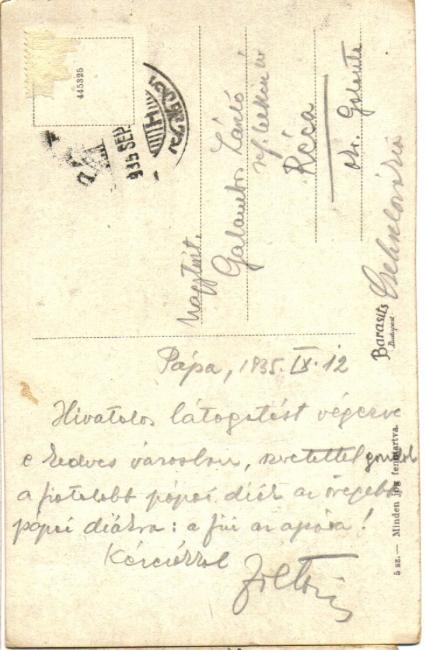 445325
935 SEP
Nagytiszt.
Galambos Zoltán
ref. lelkész úr
Réca
obr. Galanta
Csehslovákia
Barasits
Budapest
5 sz. — Minden jog fenntartva.
Pápa, 1935. IX. 12
Hivatalos látogatást végezve
e kedves városban, szeretettel gondol
a fiatalabb pápai diák az öregebb
pápai diákra: a fiú az apára!
Kézcsókkal
Zoltán